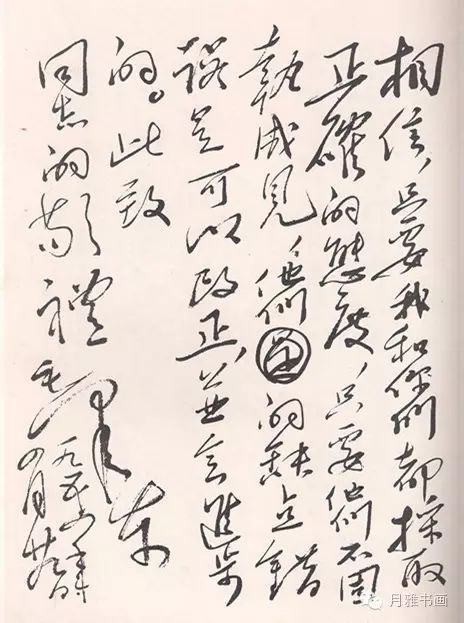 相信，只要我和你們都採取
正確的態度，只要他們不固
執成見，他們的缺点錯
誤是可以改正，並会進步
的。此致
同志的敬禮
毛澤东
一九五六年
四月廿九日
月雅书画